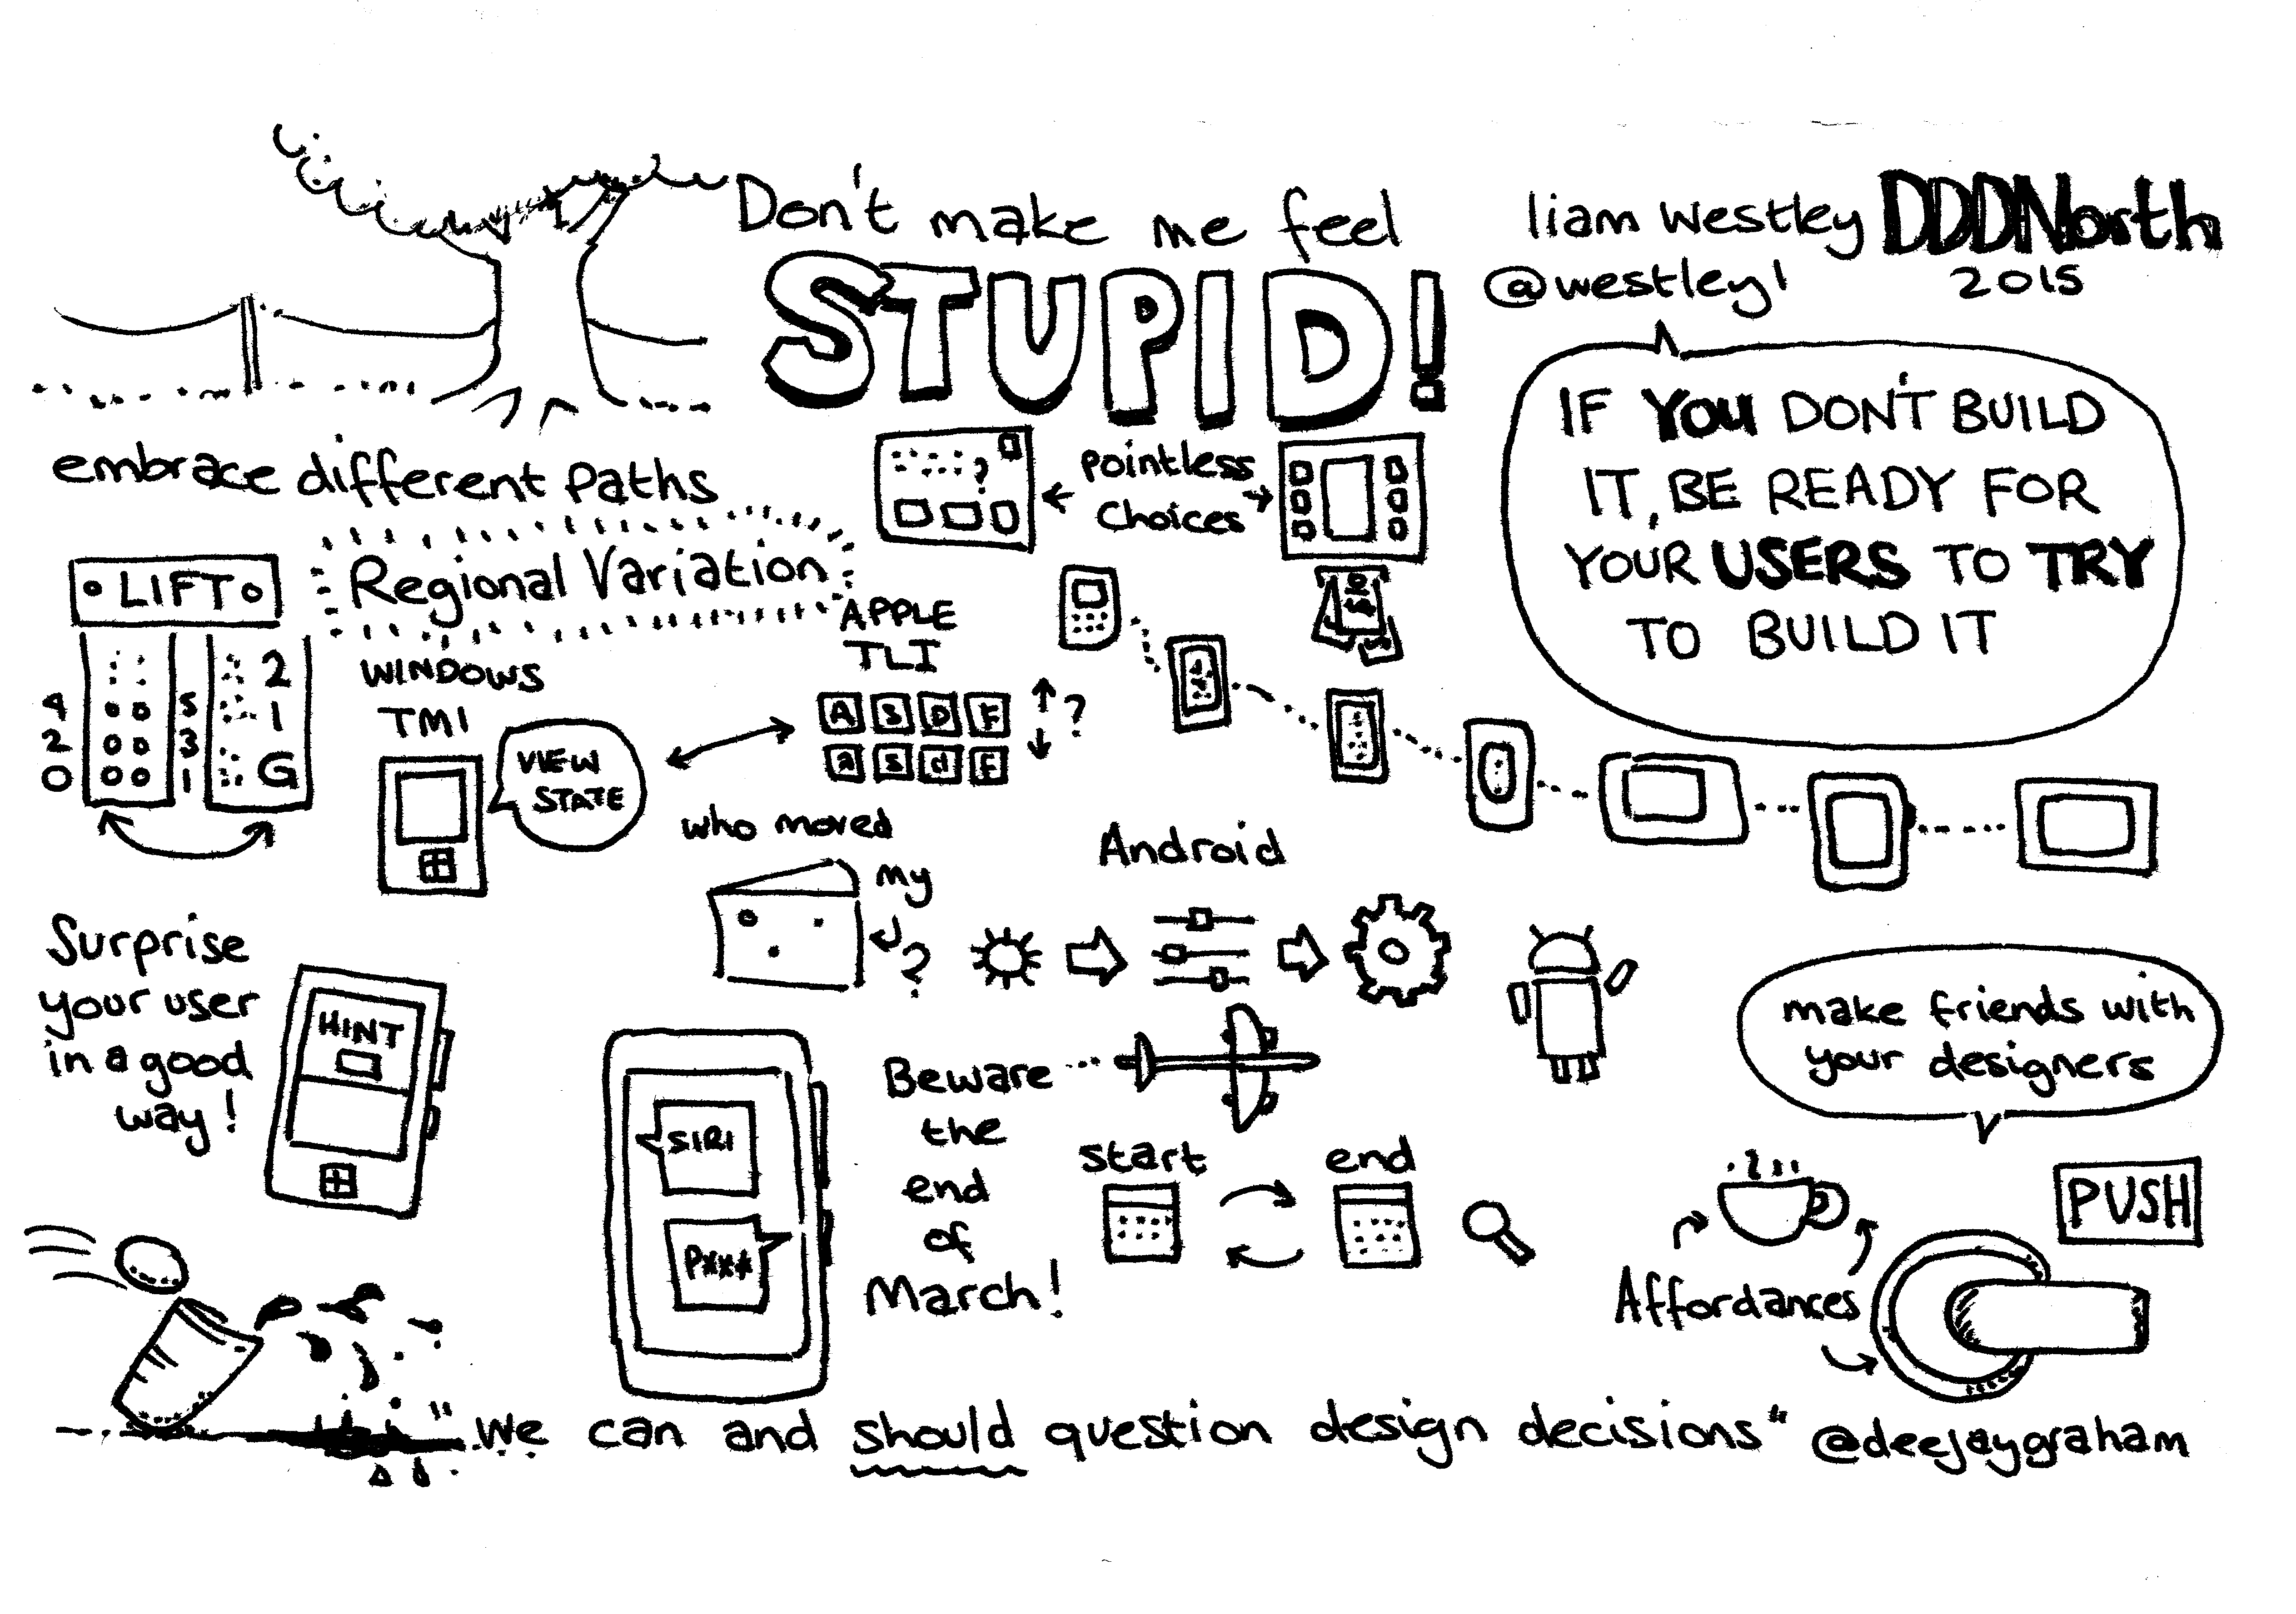 Don't make me feel
STUPID!
liam westley
@westleyl
DDDNorth
2015
IF YOU DON'T BUILD
IT, BE READY FOR
YOUR USERS TO TRY
TO BUILD IT
embrace different paths
pointless
choices
?
Regional Variation
LIFT
4
2
0
5
3
1
2
1
G
WINDOWS
TMI
VIEW
STATE
APPLE
TLI
A S D F
a s d f
?
who moved
my
?
Android
Surprise
your user
in a good
way!
HINT
SIRI
P***
Beware
the
end
of
March!
start
end
make friends with
your designers
PUSH
Affordances
"we can and should question design decisions"
@deejaygraham